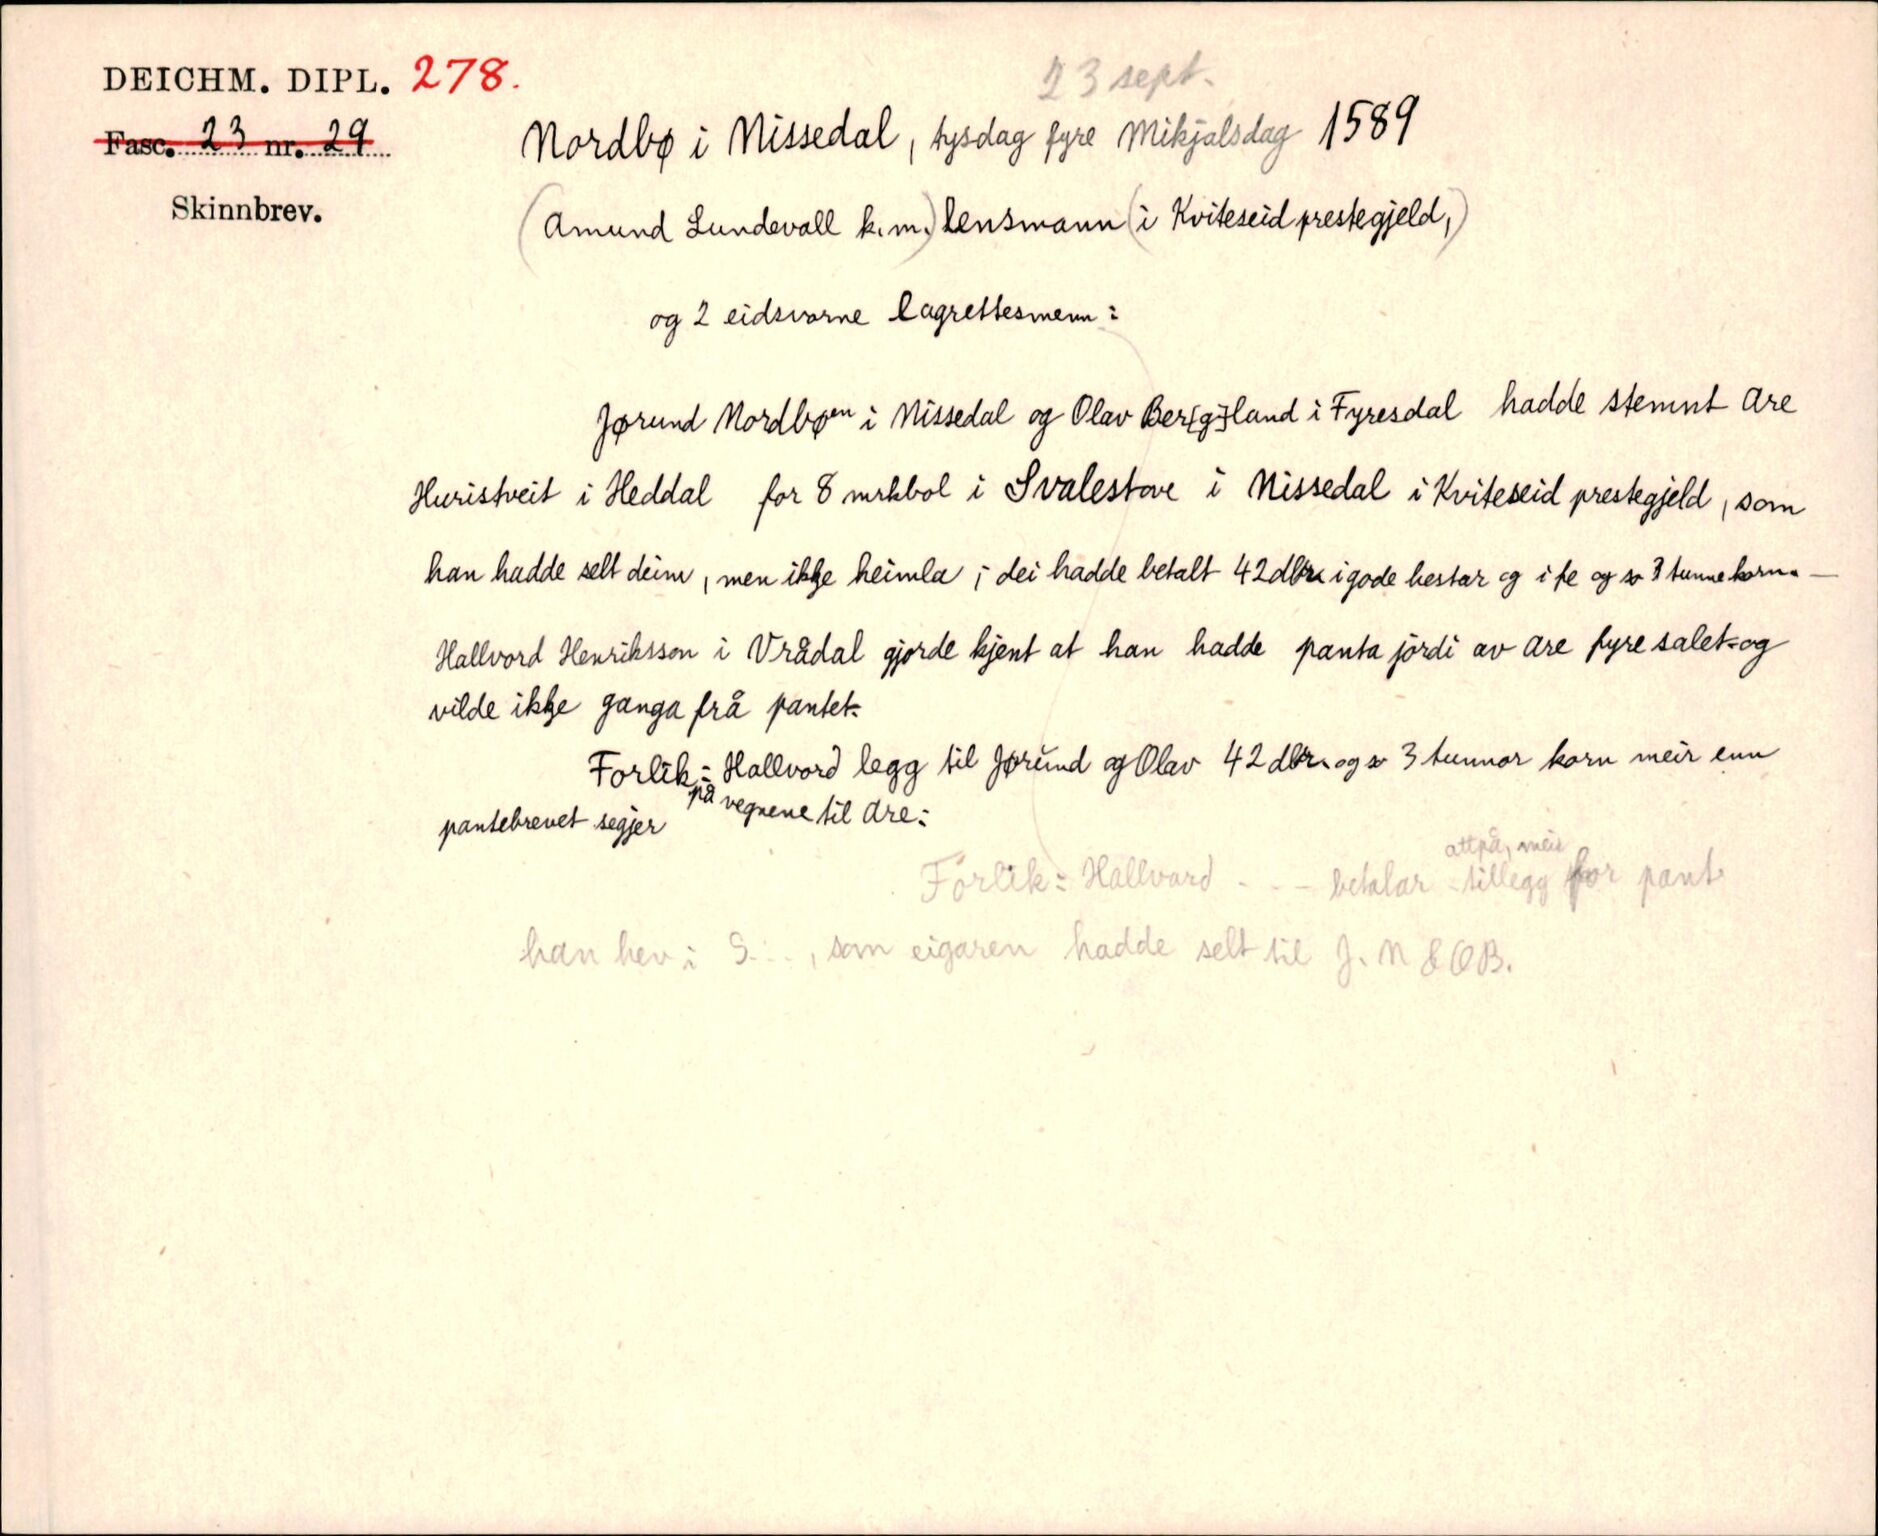 DEICHM. DIPL. 278.
23 sept.
Fasc. 23 nr. 29
Nordbø i Nissedal, tysdag fyre Mikjalsdag 1589
Skinnbrev.
(Amund Lundevall k.m.) lensmann (i Kviteseid prestegjeld,)
og 2 eidsvorne lagrettesmenn:
Jørund Nordbøen i Nissedal og Olav Ber[g]land i Fyresdal hadde stemnt Are
Huristveit i Heddal for 8 mrkbol i Svalestove i Nissedal i Kviteseid prestegjeld, som
han hadde selt deim, men ikkje heimla; dei hadde betalt 42 dlr. i gode hestar og i fe og so 3 tunne korn. —
Hallvord Henriksson i Vrådal gjorde kjent at han hadde panta jordi av Are fyre salet og
vilde ikkje ganga frå pantet.
Forlik: Hallvord legg til Jørund og Olav 42 dlr. og so 3 tunnor korn meir enn
pantebrevet segjer på vegnene til Are.
attpå, meir
Forlik: Hallvard - - - betalar tillegg for pant
han hev i S..., som eigaren hadde selt til J. N & OB.